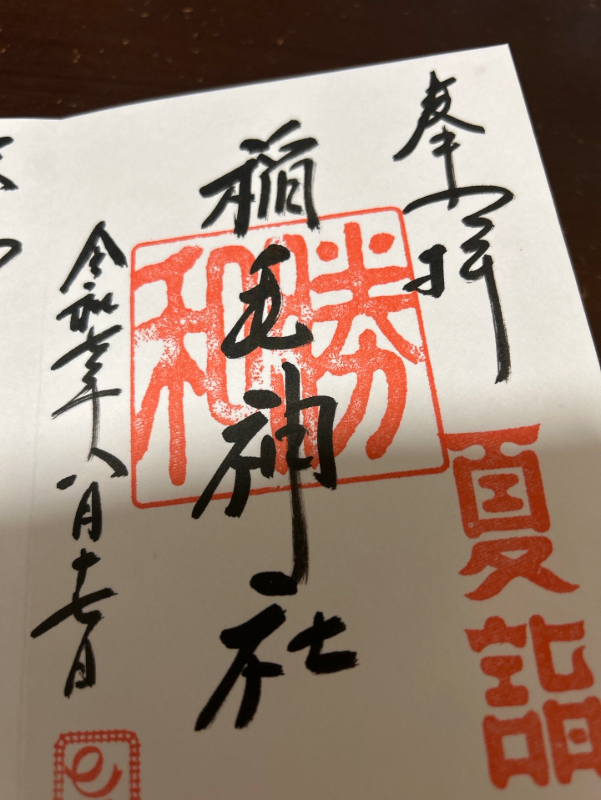 奉拝
夏詣
稲毛神社
勝和
令和七年八月十七日